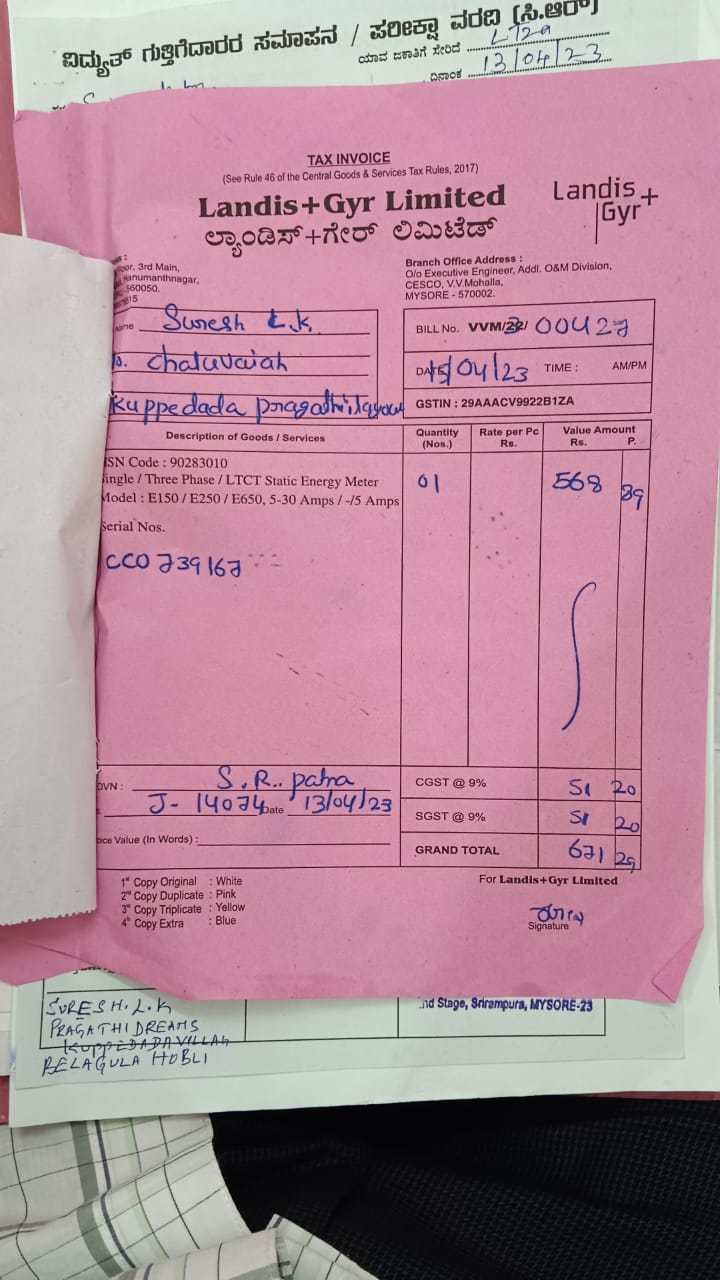 ವಿದ್ಯುತ್ ಗುತ್ತಿಗೆದಾರರ ಸಮಾಪನ / ಪರೀಕ್ಷಾ ವರದಿ (ಸಿ.ಆರ್)
ಯಾವ ಜಕಾತಿಗೆ ಸೇರಿದೆ LT2a
ದಿನಾಂಕ 13/04/23
TAX INVOICE
(See Rule 46 of the Central Goods & Services Tax Rules, 2017)
Landis+Gyr Limited
ಲ್ಯಾಂಡಿಸ್+ಗೇರ್ ಲಿಮಿಟೆಡ್
Landis+
Gyr
3rd Main,
Hanumanthnagar,
560050.
Branch Office Address :
O/o Executive Engineer, Addl. O&M Division,
CESCO, V.V.Mohalla,
MYSORE - 570002.
Name Suresh L.K.
Chaluvaiah
Kuppedada
BILL No. VVM/22/ 00427
DATE 15/04/23 TIME : AM/PM
GSTIN : 29AAACV9922B1ZA
Description of Goods / Services Quantity (Nos.) Rate per Pc Rs. Value Amount Rs. P.
SN Code : 90283010
ingle / Three Phase / LTCT Static Energy Meter 01 568 89
Model : E150 / E250 / E650, 5-30 Amps / -/5 Amps
Serial Nos.
CC0739167
OVN : S.R. patna
J- 14074 Date 13/04/23
Value (In Words) :
CGST @ 9% 51 20
SGST @ 9% 51 20
GRAND TOTAL 671 29
1st Copy Original : White
2nd Copy Duplicate : Pink
3rd Copy Triplicate : Yellow
4th Copy Extra : Blue
For Landis+Gyr Limited
Signature
SURESH. L.K
PRAGATHI DREAMS
KUPPEDADA VILLAG
BELAGULA HOBLI
nd Stage, Srirampura, MYSORE-23